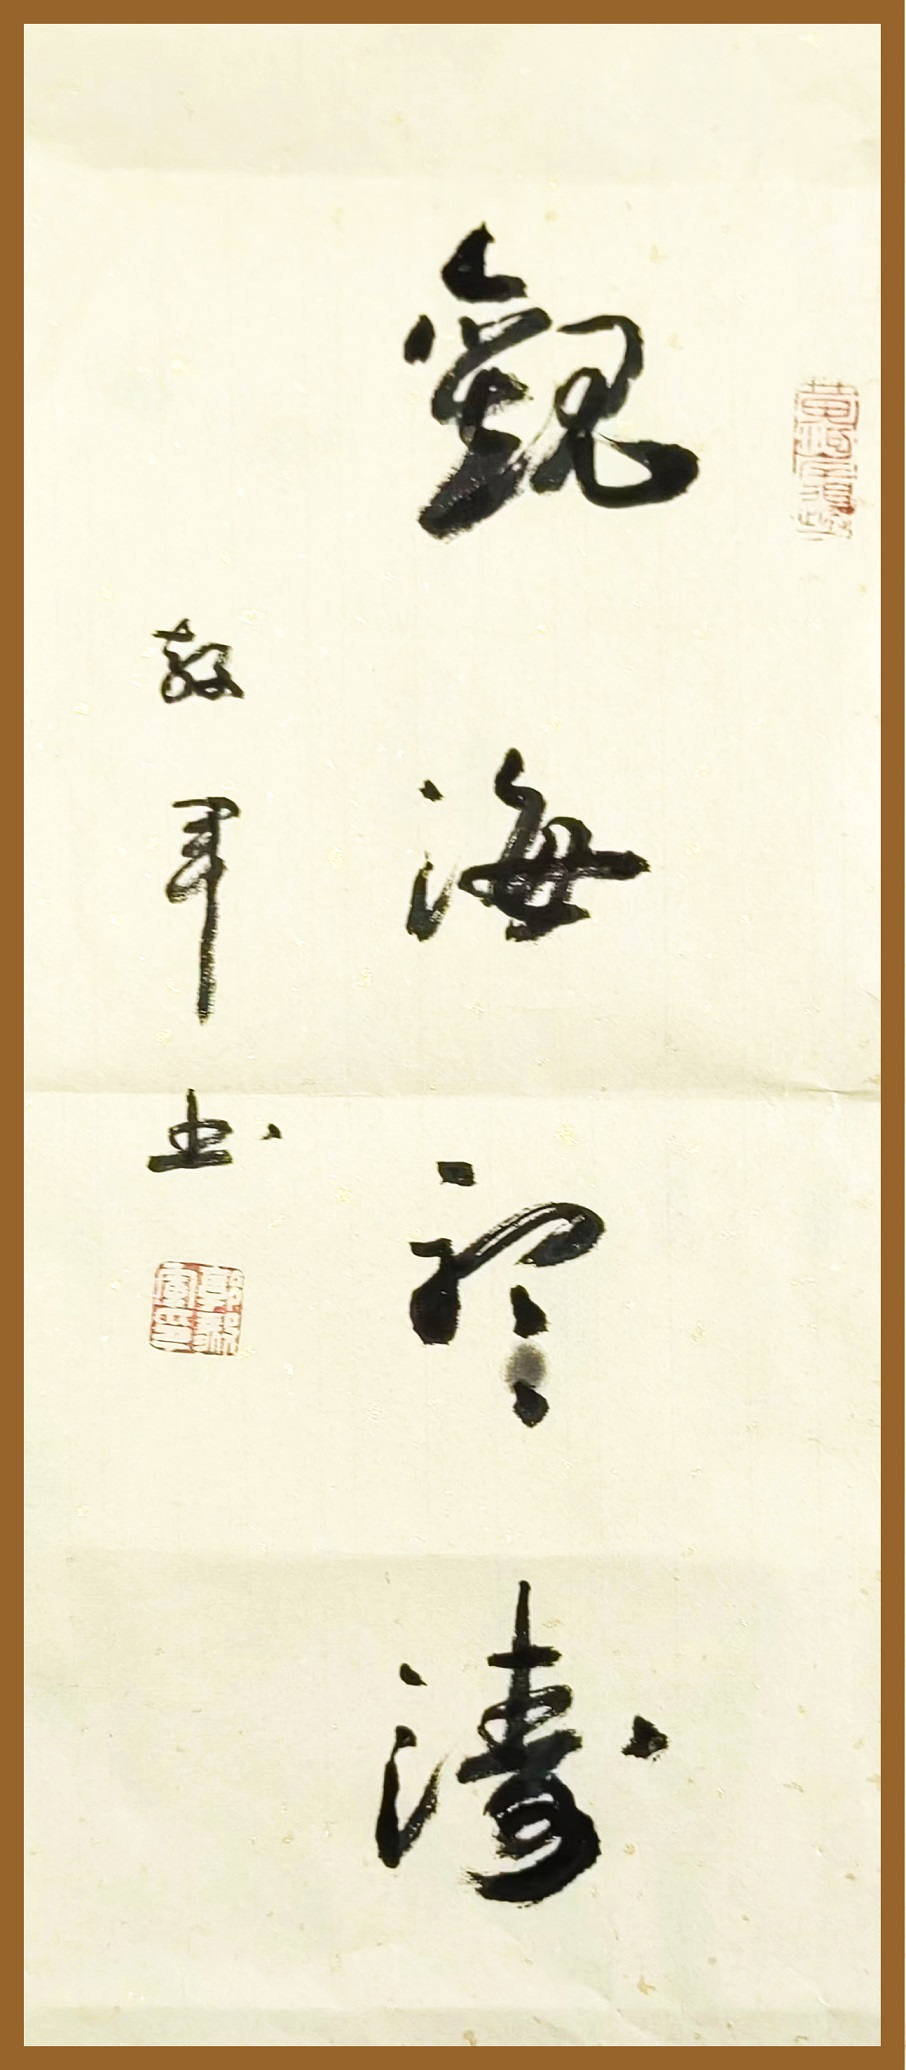 觀海聽濤
敬軍書